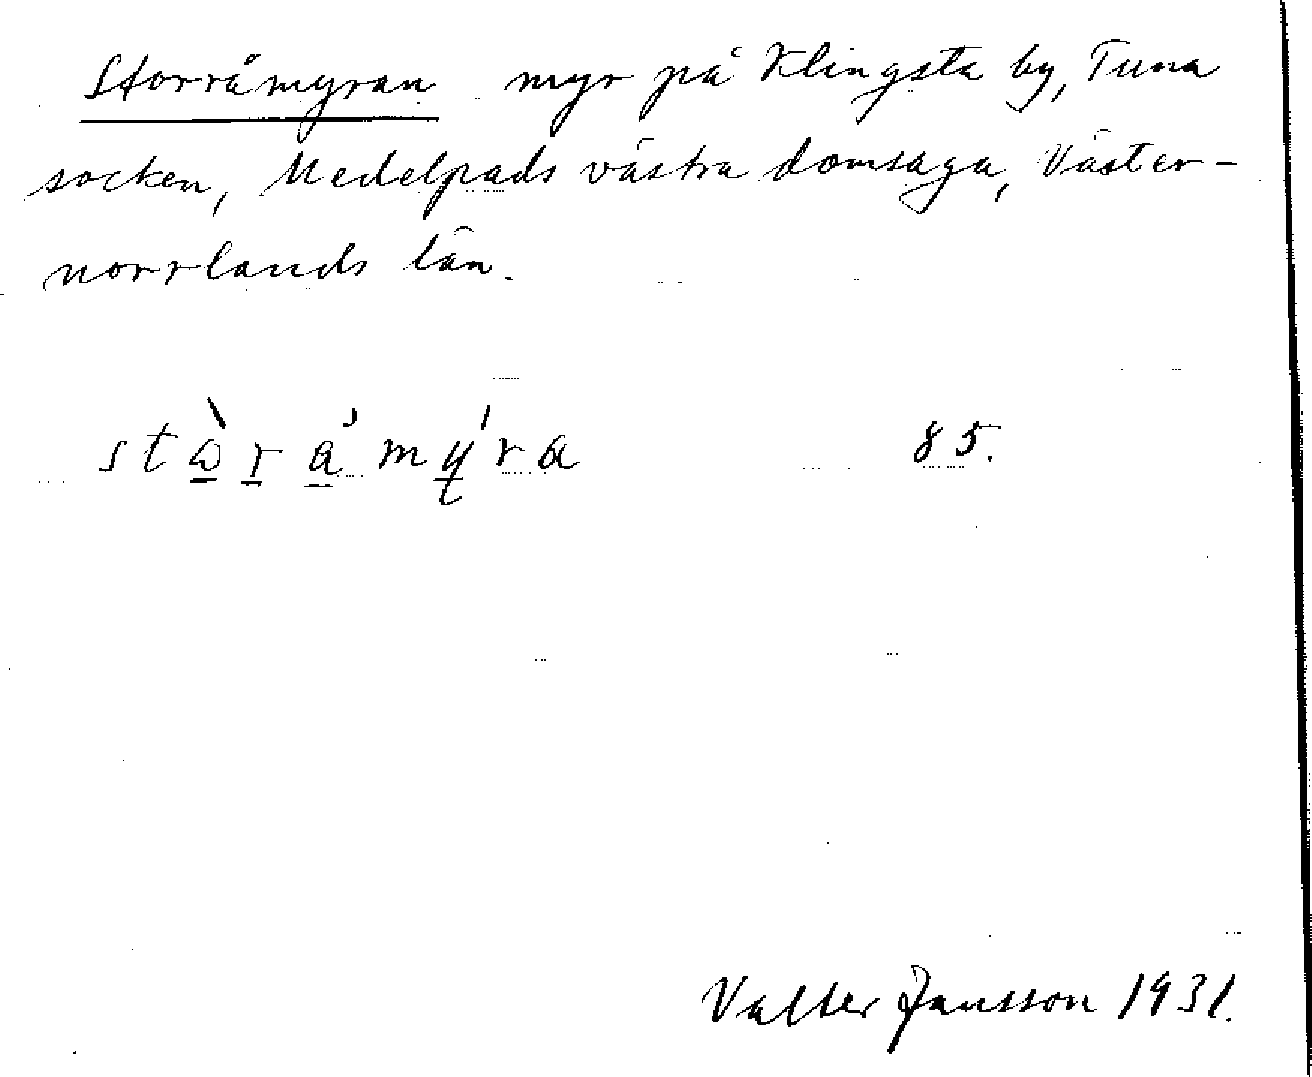 Storråmyran myr på Klingsta by, Tuna
socken, Medelpads västra domsaga, Väster-
norrlands län.
stὼr̲a̲̓mý̲ra 85.
Valter Jansson 1931.